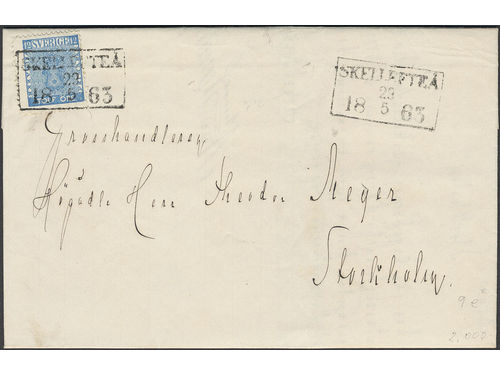 12 SVERIGE 12
SKELLEFTEÅ
23
18 5 63
TOLF ÖRE
SKELLEFTEÅ
23
18 5 63
Grosshandleren
Högädle Herr Theodor Meyer
Stockholm.
9 e
2.000